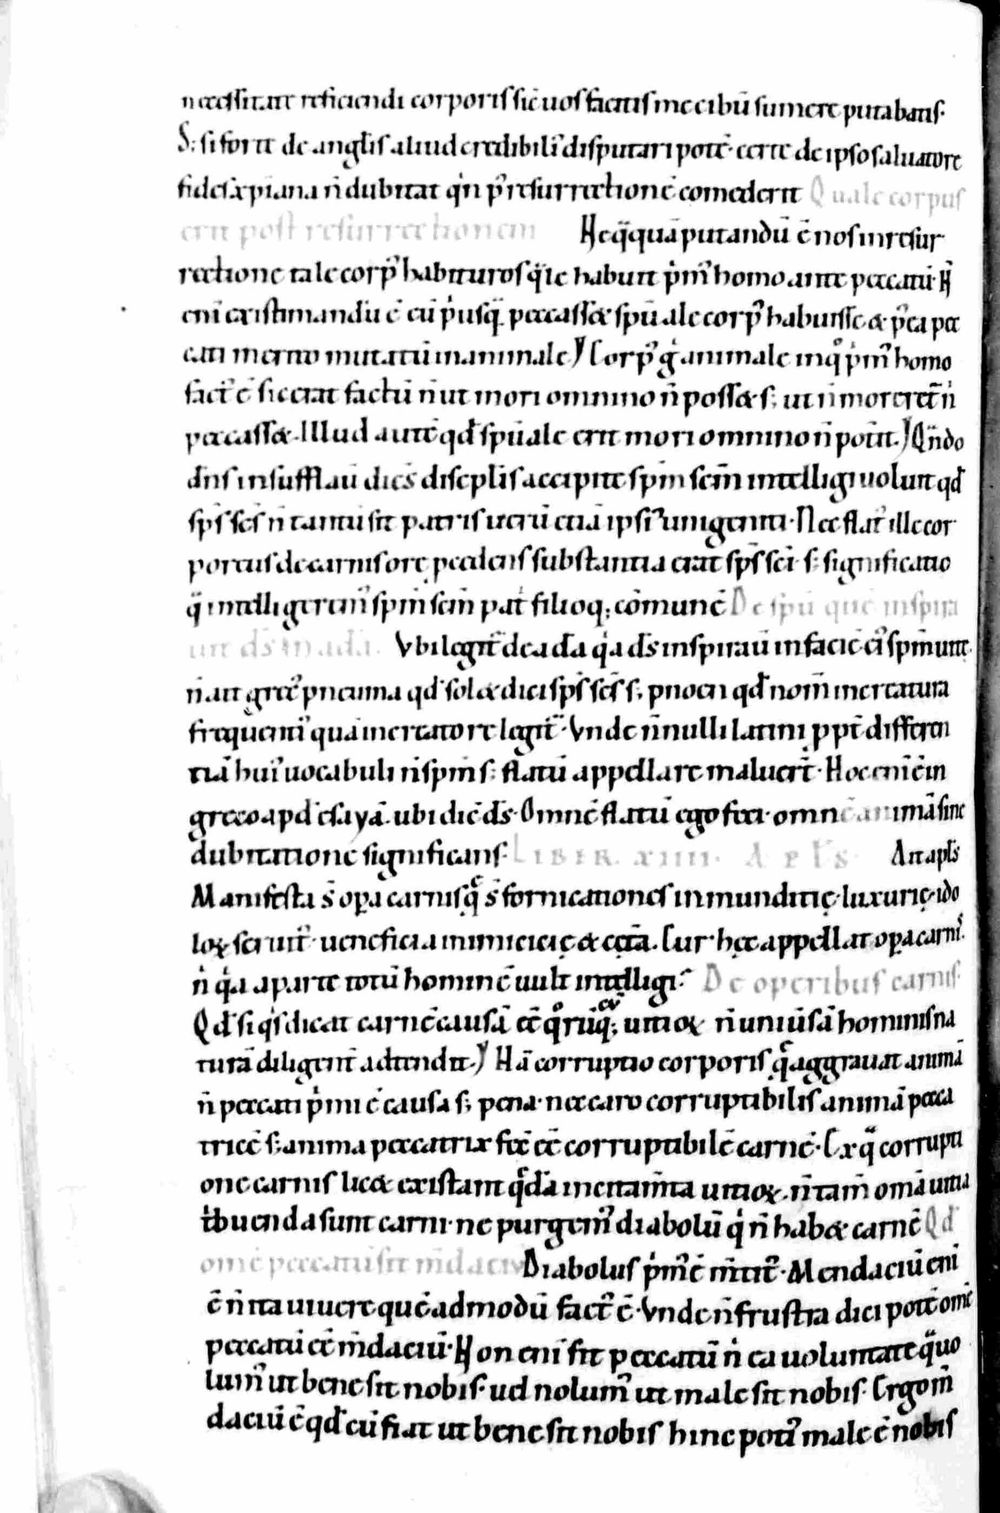 necessitate reficiendi corporis sic̄ uos facitis me cibū sumere putabatis·
S; si forte de angl̓is aliud credibili᷒ disputari potē· certe de ipso saluatore
fides xp̄iana n̄ dubitat qn̓ p᷒ resurrectionē comederit Quale corpus
erit post resurrectionem Neq̄quā putandū ē nos in resur
rectione tale corp᷒ habituros q̄le habuit p̓m᷒ homo ante peccatū· N̄
eni existimandū ē eū p̓usq̄ peccass& spūale corp᷒ habuisse & p᷒ea pec
cati merito mutatū in animale Corp᷒ g̓ animale in q̊ p̓m᷒ homo
fact᷒ ē sic erat factū n̄ ut mori omnino n̄ poss& s; ut n̄ moreret̄ n̓
peccass&· Illud autē qd̄ spūale erit mori omnino n̄ potit̄· Qn̄do
dn̄s insufflaū dicēs discipl̓is accipite sp̄m sc̄m intelligi uoluit qd̄
sp̄s sc̄s n̄ tantū sit patris uerū etiā ipsi᷒ unigeniti· Nec flat᷒ ille cor
poreus de carnis ore pcedens substantia erat sp̄s sc̄i· s; significatio
q̄ intelligerem᷒ sp̄m sc̄m pat̓ filioq; cōmunē De spū quē inspira
uit d̄s in adā· Vbi legit̄ de adā q̓a d̄s inspiraū in faciē ei᷒ sp̄m uitę
n̄ ait grece᷒ pneuma qd̄ sol& dici sp̄s sc̄s s; pnoen qd̄ nom̄ in creatura
frequenti᷒ quā in creatore legit̄· Vnde n̄nulli latini ppt̄ differen
tiā hui᷒ uocabuli n̄ sp̄m s; flatū appellare maluer̄t· Hoc eni ē in
greco apd̓ esayā· ubi dicē d̄s· Omnē flatū ego feci· omnē animā sine
dubitatione significans· LIBER. XIIII. APL̄S· Ait apl̄s
Manifesta s̄ opa carnis q̄ s̄ fornicationes inmunditię· luxurię· ido
loꝝ seruit᷒· ueneficia inimicicię & cęt̄a· Cur hęc appellat opa carni᷒·
n̓ q̓a a parte totū hominē uult intelligi· De operibus carnis·
Qd̄ si q̓s dicat carnē causā eē q̊rūq; uitioꝝ n̄ uniūsā hominis na
turā diligent̄ adtendit· Nā corruptio corporis q̄ aggrauat animā
n̄ peccati p̓mi ē causa s; pena· nec caro corruptibilis animā pecca
tricē s; anima peccatrix fec̄ eē corruptibilē carnē· Ex q̄ corrupti
one carnis lic& existant q̄dā incitam̄ta uitioꝝ· n̄ tam̄ omā uitia
tribuenda sunt carni· ne purgem᷒ diabolū q̓ n̄ hab& carnē Qd̄
omē peccatū sit m̄daciū Diabolus p̓m᷒ ē m̄tit᷒· Mendaciū eni
ē n̄ ita uiuere quēadmodū fact᷒ ē· Vnde n̄ frustra dici potē omē
peccatū eē m̄daciū· Non eni sit peccatū n̓ ea uoluntate q̄ uo
lum᷒ ut bene sit nobis· ud nolum᷒ ut male sit nobis· Ergo m̄
daciū ē qd̄ cū fiat ut bene sit nobis hinc poti᷒ male ē nobis